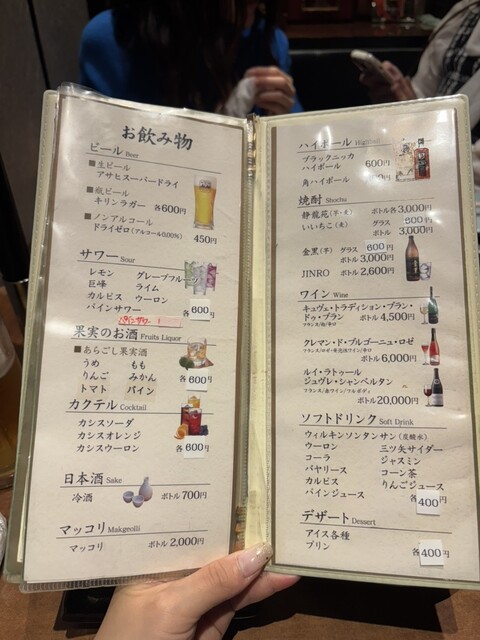 お飲み物
ビール Beer
■生ビール
アサヒスーパードライ
■瓶ビール
キリンラガー 各600円
■ノンアルコール
ドライゼロ(アルコール0.00%) 450円
サワー Sour
レモン グレープフルーツ
巨峰 ライム
カルピス ウーロン
パインサワー 各600円
果実のお酒 Fruits Liquor
■あらごし果実酒
うめ もも
りんご みかん
トマト パイン 各600円
カクテル Cocktail
カシスソーダ
カシスオレンジ
カシスウーロン 各600円
日本酒 Sake
冷酒 ボトル700円
マッコリ Makgeolli
マッコリ ボトル2,000円
ハイボール Highball
ブラックニッカ
ハイボール 600円
角ハイボール
焼酎 Shochu
静龍苑(芋・麦) ボトル各3,000円
いいちこ(麦) グラス 500円
ボトル 3,000円
金黒(芋) グラス 600円
ボトル3,000円
JINRO ボトル2,600円
ワイン Wine
キュヴェ・トラディション・ブラン・
ドゥ・ブラン ボトル4,500円
フランス/泡/辛口
クレマン・ド・ブルゴーニュ・ロゼ
フランス/ロゼ・発泡性ワイン/辛口
ボトル6,000円
ルイ・ラトゥール
ジュヴレ・シャンベルタン
フランス/赤ワイン/フルボディ
ボトル20,000円
ソフトドリンク Soft Drink
ウィルキンソンタンサン(炭酸水)
ウーロン 三ツ矢サイダー
コーラ ジャスミン
バヤリース コーン茶
カルピス りんごジュース
パインジュース 各400円
デザート Dessert
アイス各種
プリン 各400円